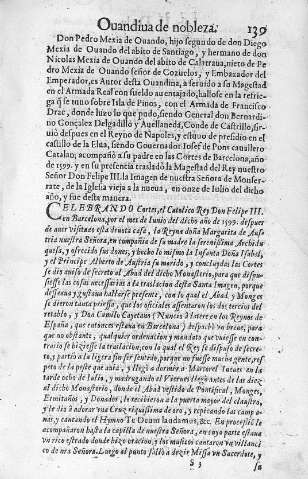 Ouandiua de nobleza. 139
Don Pedro Mexia de Ouando, hijo segundo de don Diego
Mexia de Ouando del abito de Santiago, y hermano de don
Nicolas Mexia de Ouando del abito de Calatraua, nieto de Pe
dro Mexia de Ouando señor de Cozuelos, y Embaxador del
Emperador, es Autor desta Ouandina, a seruido a su Magestad
en el Armada Real con sueldo auentajado, hallose en la refrie-
ga q̃ se tuuo sobre Isla de Pinos, con el Armada de Francisco
Drac, donde hizo lo que pudo, siendo General don Bernardi-
no Gonçalez Delgadillo y Auellaneda, Conde de Castrillo, sir-
uiò despues en el Reyno de Napoles, y estuuo de presidio en el
castillo de la Elua, siendo Gouernador Iosef de Pont cauallero
Catalan, acompañò a su padre en las Cortes de Barcelona, año
de 1599. y en su presencia traslado la Magestad del Rey nuestro
Señor Don Felipe III. la Imagen de nuestra Señora de Monser-
rate, de la Iglesia vieja a la nueua, en onze de Iulio del dicho
año, y fue desta manera.
CELEBRANDO Cortes, el Catolico Rey Don Felipe III.
en Barcelona, por el mes de Iunio del dicho año de 1599. despues
de auer visitado esta deuota casa, la Reyna doña Margarita de Aus-
tria nuestra Señora, en compañia de su madre la serenissima Archidu
quesa, y ofrecido sus dones, y hecho lo mismo la Infanta Doña Isabel,
y el Principe Alberto de Austria su marido, y concluydas las Cortes
se dio auiso de secreto al Abad del dicho Monasterio, para que dispu-
siesse las cosas necessarias a la traslacion desta Santa Imagen, porque
desseaua y gustaua hallarse presente, con lo qual el Abad, y Monges
se dieron tanta priessa, que los oficiales assentaron los dos tercios del
retablo, y Don Camilo Cayetano, Nuncio à latere en los Reynos de
España, que entonces estaua en Barcelona, despachò vn breue, para
que no obstante, qualquier ordenacion y mandato que vuiesse en con-
trario se hiziesse la traslacion, con lo qual el Rey se dispuso de secre-
to, y partiò a la ligera sin ser sentido, porque no fuesse mucha gente, res
peto de la peste que auia, y llegò a dormir a Martorel Iueues en la
tarde ocho de Iulio, y madrugando el Viernes llegò antes de las diez
al dicho Monasterio, donde el Abad vestido de Pontifical, Monges,
Ermitaños, y Donados, le recibieron a la puerta mayor del claustro,
y le dio à adorar vna Cruz riquissima de oro, y repicando las campa-
nas, y cantando el Hymno Te Deum laudamus, &c. En procession
fueron hasta la capilla de nuestra Señora, en cuya parte estaua
vn rico estrado donde hizo oracion, y los musicos cantaron vn villanci
co de nra Señora. Luego al punto saliò a dezir Missa vn Sacerdote, y
S 3 la